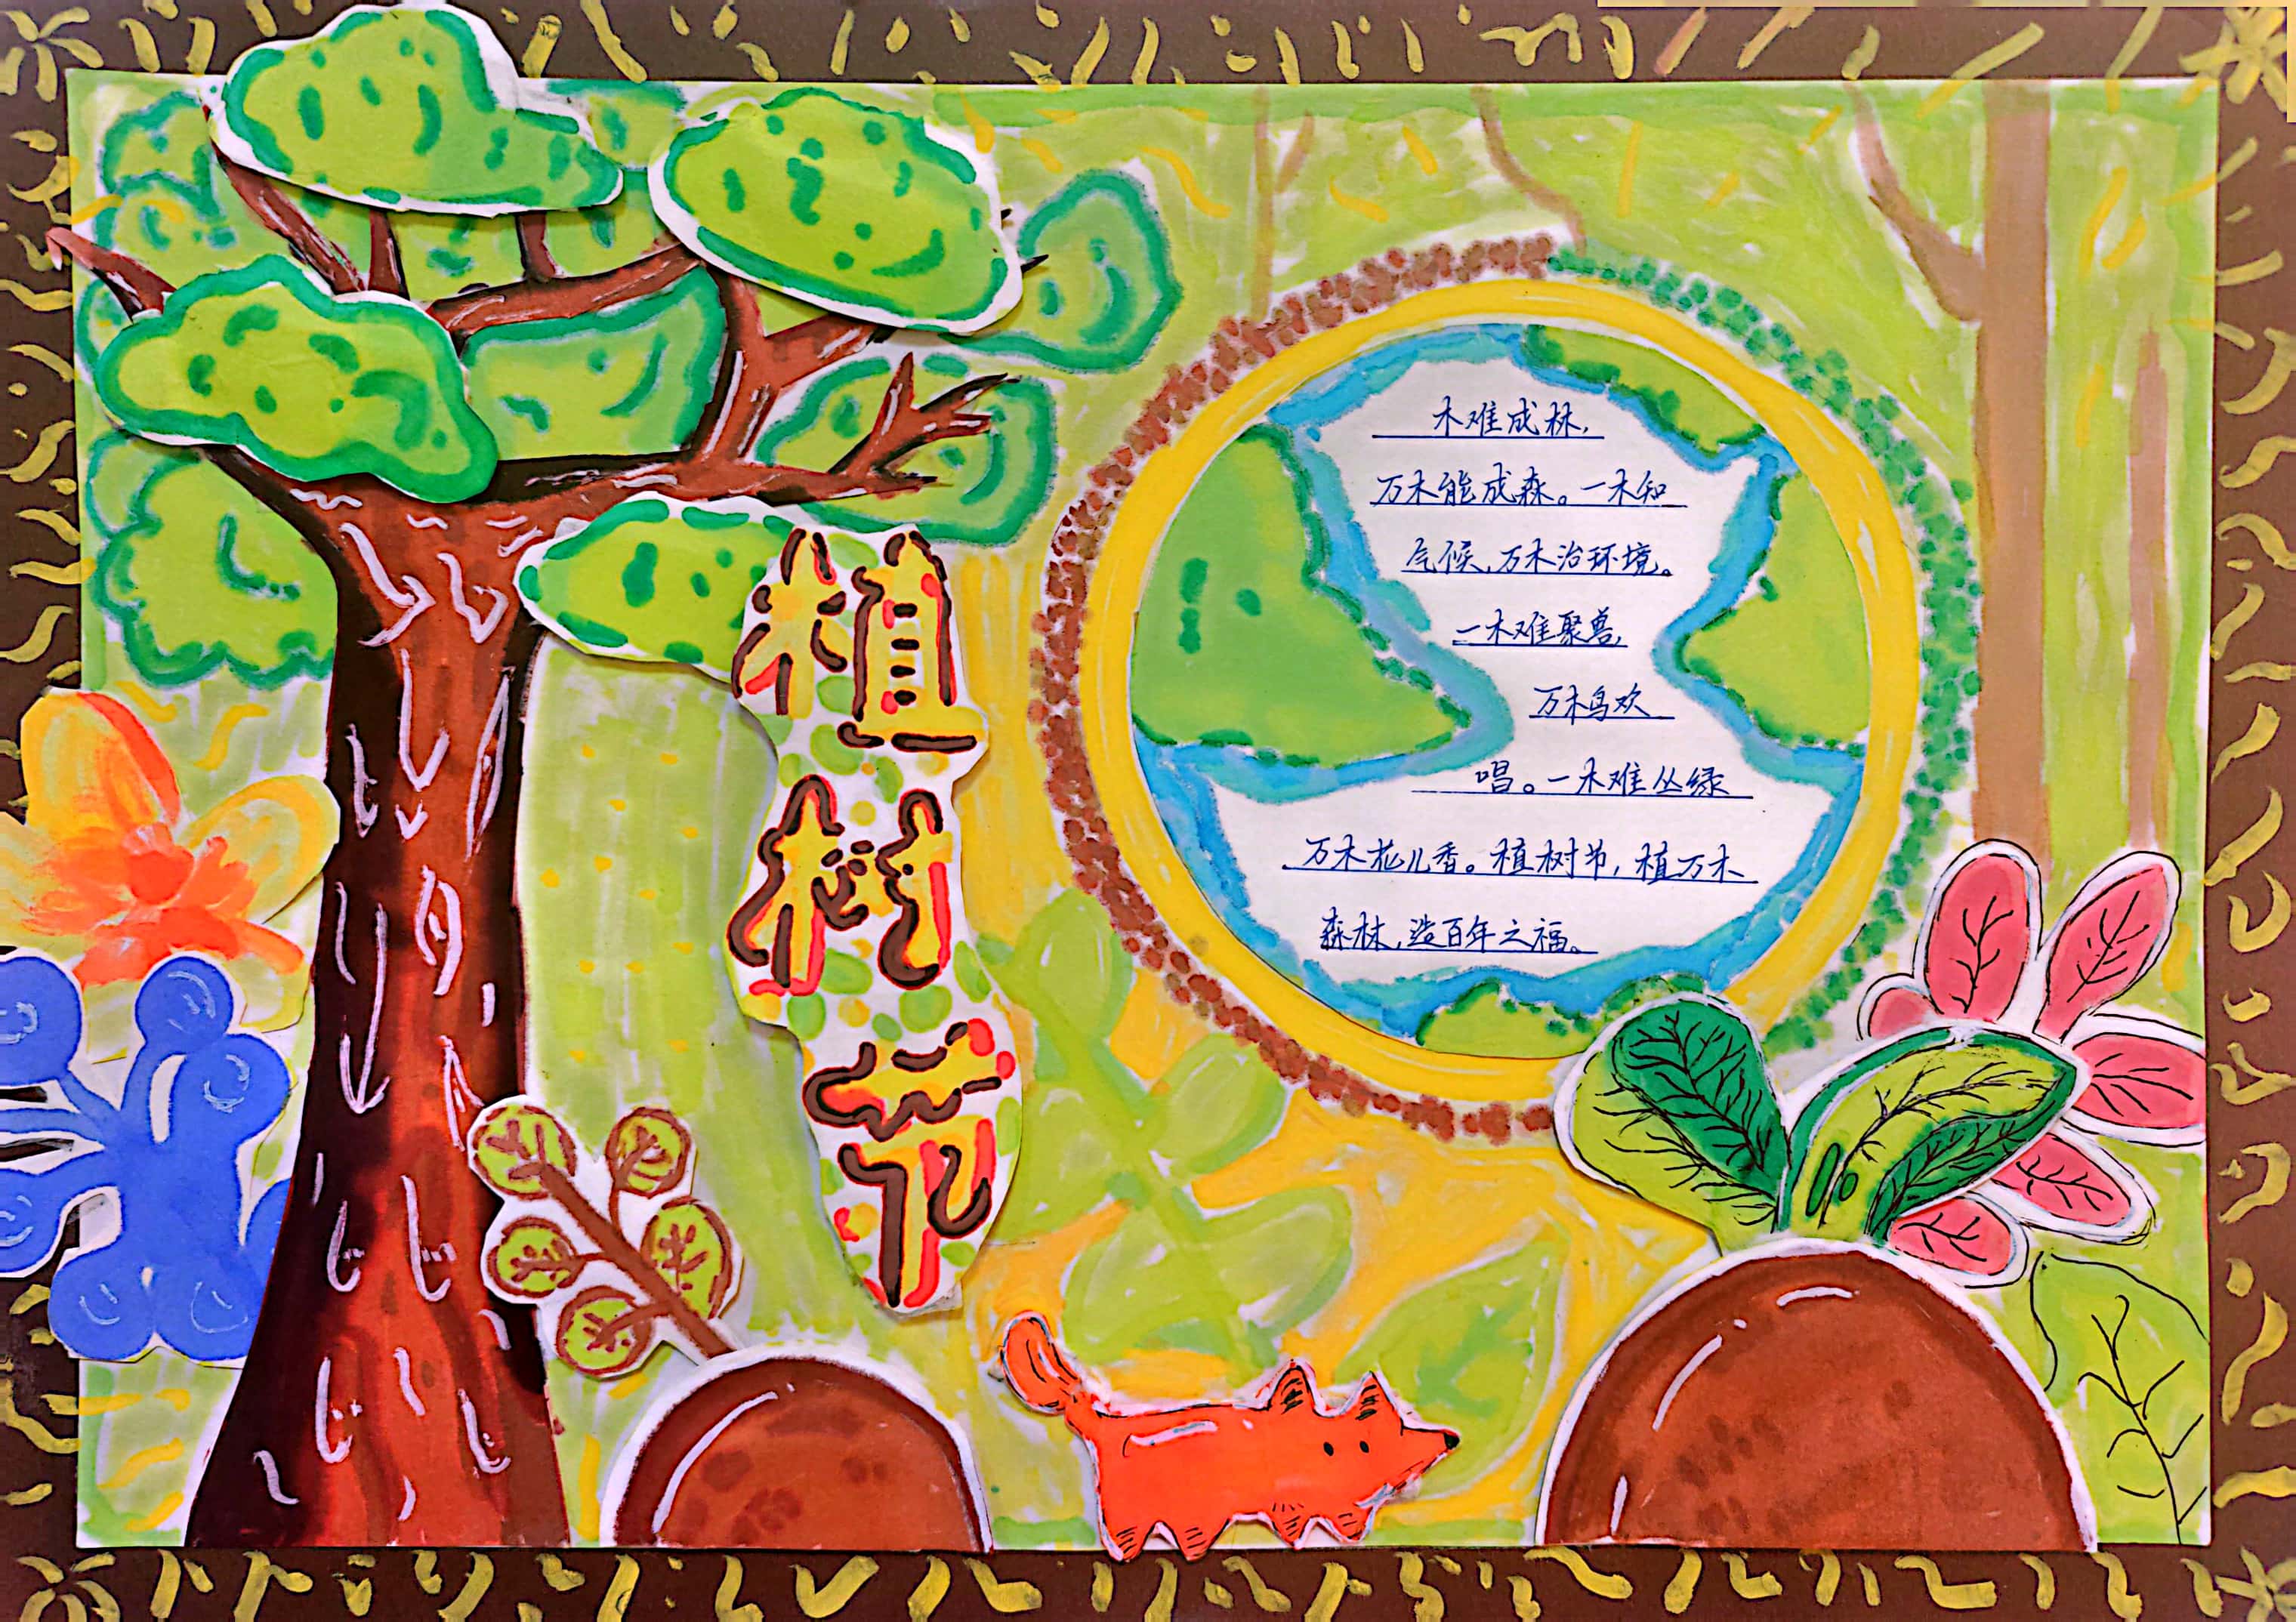 植树节
木难成林,
万木能成森。一木知
气候,万木治环境。
一木难聚兽,
万木鸟欢
唱。一木难丛绿
万木花儿香。植树节,植万木
森林,造百年之福。